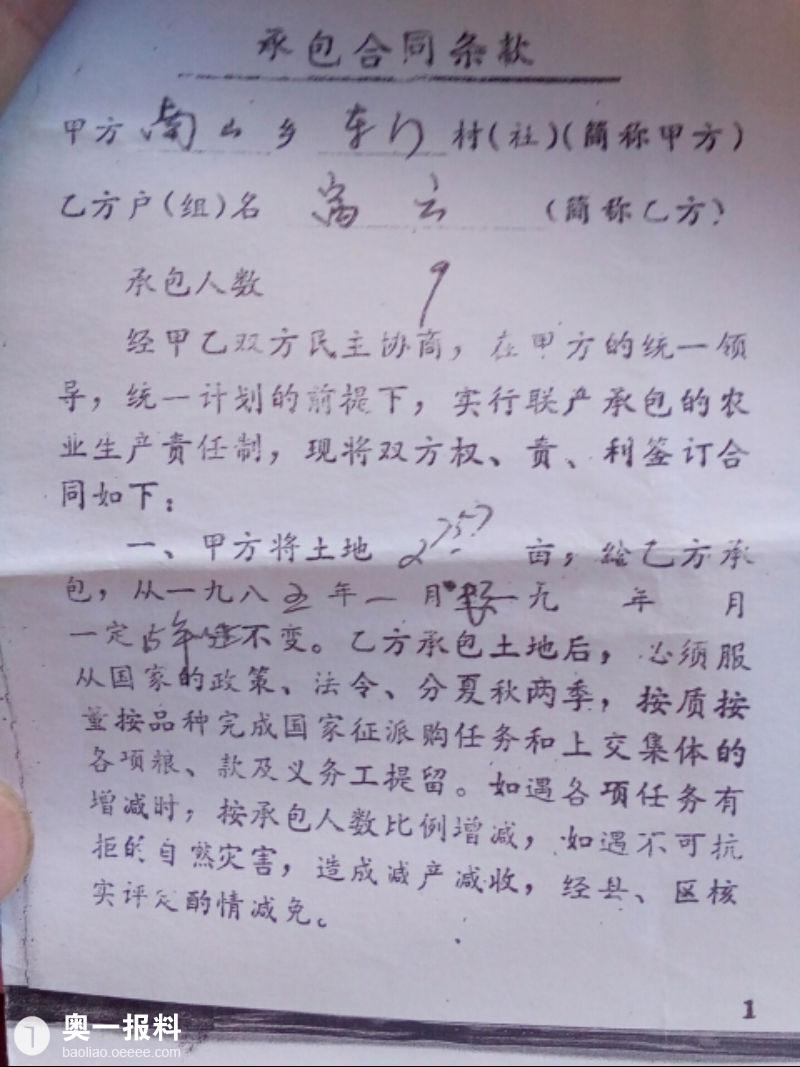 承包合同条款
甲方南山乡 车门 村(社)(简称甲方)
乙方户(组)名 云 (简称乙方)
承包人数 9
经甲乙双方民主协商，在甲方的统一领
导，统一计划的前提下，实行联产承包的农
业生产责任制，现将双方权、责、利签订合
同如下：
一、甲方将土地 亩，给乙方承
包，从一九八五年一月 一九 年 月
一定 年 不变。乙方承包土地后，必须服
从国家的政策、法令、分夏秋两季，按质按
量按品种完成国家征派购任务和上交集体的
各项粮、款及义务工提留。如遇各项任务有
增减时，按承包人数比例增减，如遇不可抗
拒的自然灾害，造成减产减收，经县、区核
实评定酌情减免。
1
奥一报料
baoliao.oeeee.com